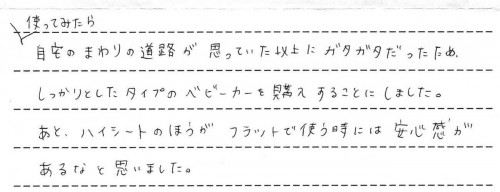 使ってみたら
自宅のまわりの道路が思っていた以上にガタガタだったため、
しっかりとしたタイプのベビーカーを購入することにしました。
あと、ハイシートのほうがフラットで使う時には安心感が
あるなと思いました。